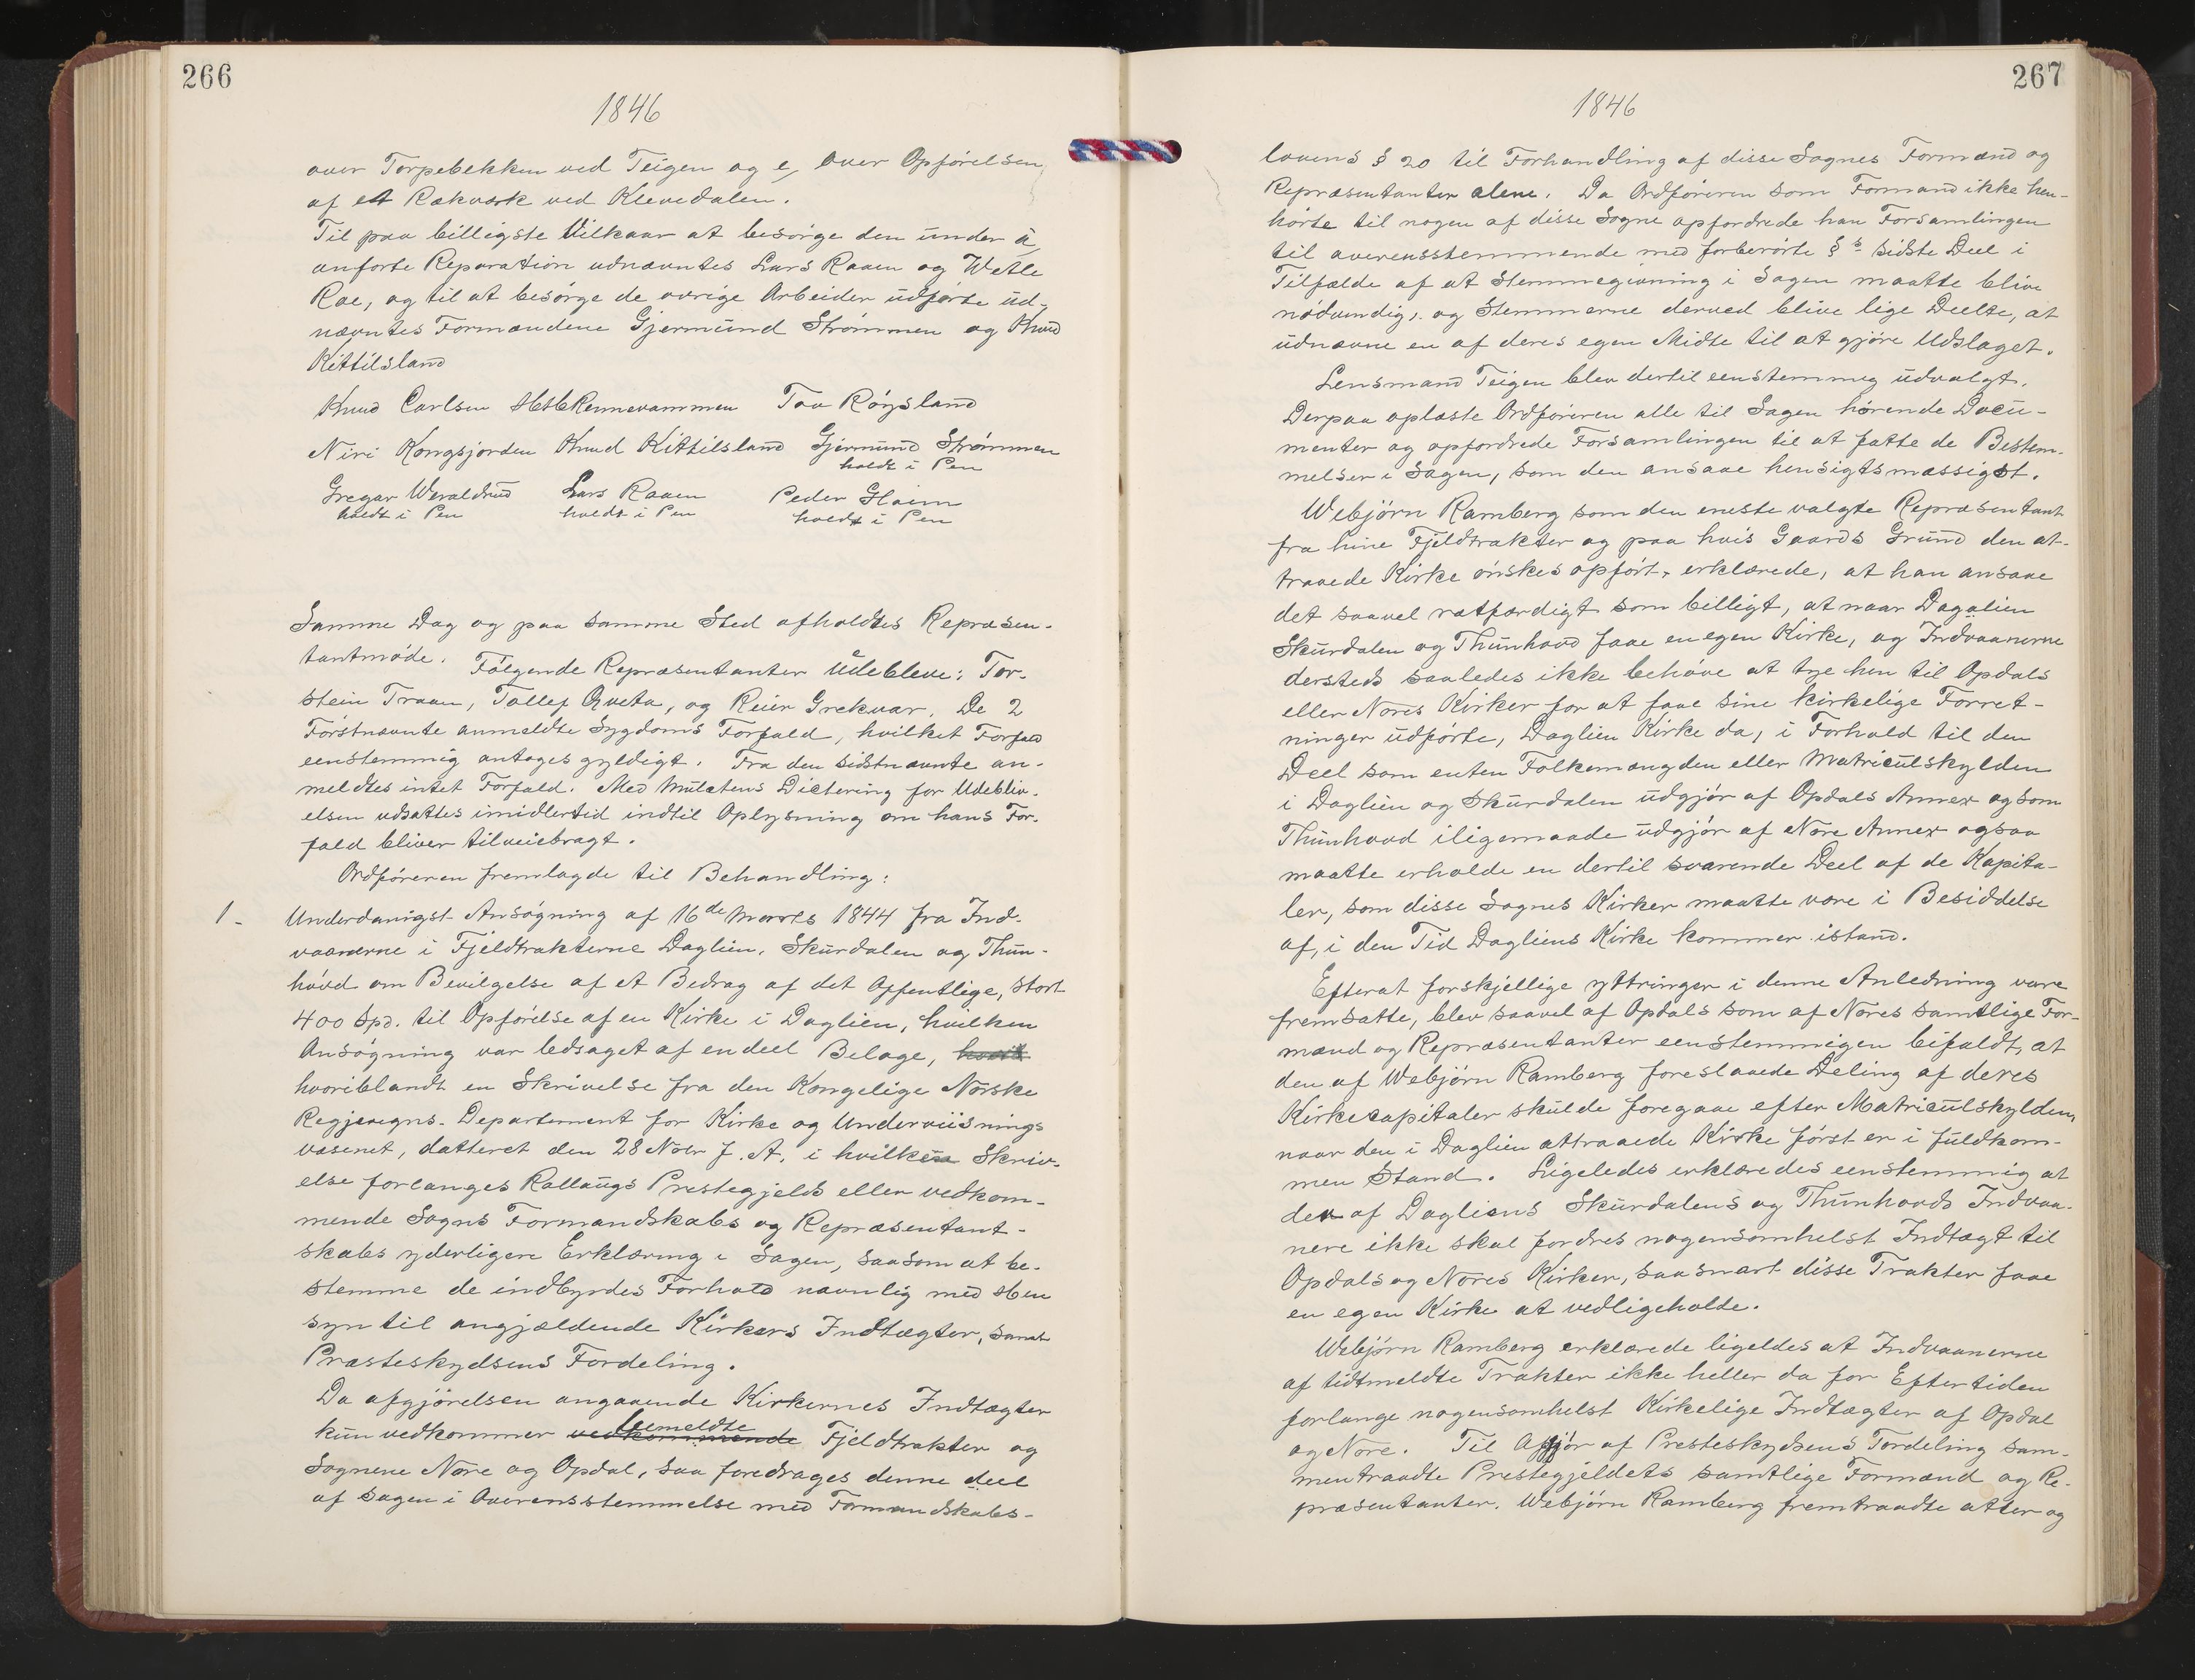 266
1846
over Torpebekken ved Teigen og e, over Opførelsen
af et Rækværk ved Klevedalen.
Til paa billigste Vilkaar at besørge den under a,
anførte Reparation udnævntes Lars Raaen og Wetle
Roe, og til at besørge de øvrige Arbeider udførte ud-
nævntes Formændene Gjermund Strømmen og Knud
Kittilsland
Knud Carlsen Tov Røysland
Niri Kongsjorden Knud Kittilsland Gjermund Strømmen
holdt i Pen
Gregar Weraldrud Lars Raaen Peder Gloim
holdt i Pen holdt i Pen holdt i Pen
Samme Dag og paa samme Sted afholdtes Repræsen-
tantmøde. Følgende Repræsentanter udebleve: Tor-
stein Traaen, Tollef Qveta, og Reier Grekvar. De 2
Førstnævnte anmeldte Sygdoms Forfald, hvilket Forfald
eenstemmig antoges gyldigt. Fra den sidstnævnte an-
meldtes intet Forfald. Med Mulctens Dictering for Udebliv-
elsen udsattes imidlertid indtil Oplysning om hans For-
fald bliver tilveiebragt.
Ordføreren fremlagde til Behandling:
1- Underdanigst Ansøgning af 16de Marts 1844 fra Ind-
vaanerne i Fjeldtrakterne Daglien, Skurdalen og Thun-
hovd om Bevilgelse af et Bedrag af det Offentlige, stort
400 Spd. til Opførelse af en Kirke i Daglien, hvilken
Ansøgning var ledsaget af endeel Belage,
hvoriblandt en Skrivelse fra den Kongelige Norske
Regjeregns-Departement for Kirke og Underviisnings
væsenet, datteret den 28 Novbr f. A. i hvilken Skriv-
else forlanges Rollaugs Prestegjelds eller vedkom-
mende Sogns Formandskabs og Repræsentant-
skabs yderligere Erklæring i Sagen, saasom at be-
stemme de indbyrdes Forhold navnlig med Hen
syn til angjældende Kirkers Indtægter, samt
Præsteskydsens Fordeling.
Da afgjørelsen angaaende Kirkernes Indtægter
kun vedkommer vedkommende bemeldte Fjeldtrakter og
Sognene Nore og Opdal, saa foredrages denne deel
af Sagen i Overensstemmelse med Formandskabs-
267
1846
lovens § 20 til Forhandling af disse Sognes Formænd og
Repræsentanter alene. Da Ordføreren som Formand ikke hen-
hørte til nogen af disse Sogne opfordrede han Forsamlingen
til overensstemmende med forberørte §s sidste Deel i
Tilfælde af at Stemmegivning i Sagen maatte blive
nødvendig, og Stemmerne derved blive lige Deelte, at
udnævne en af deres egen Midte til at gjøre Udslaget.
Lensmand Teigen blev dertil eenstemmig udvalgt.
Derpaa oplæste Ordføreren alle til Sagen hørende Docu-
menter og opfordrede Forsamlingen til at fatte de Bestem-
melser i Sagen, som den ansaae hensigtsmæssigst.
Webjørn Ramberg som den eneste valgte Repræsentant
fra hine Fjeldtrakter og paa hvis Gaards Grund den at-
traaede Kirke ønskes opført, erklærede, at han ansaae
det saavel rætfærdigt som billigt, at naar Dagalien
Skurdalen og Thunhovd faae en egen Kirke, og Indvaanerne
dersteds saaledes ikke behøve at tye hen til Opdals
eller Nores Kirker for at faae sine kirkelige Forret-
ninger udførte, Daglien Kirke da, i Forhold til den
Deel som enten Folkemængden eller Matriculskylden
i Daglien og Skurdalen udgjør af Opdals Annex og som
Thunhovd iligemaade udgjør af Nore Annex ogsaa
maatte erholde en dertil svarende Deel af de Kapita-
ler, som disse Sognes Kirker maatte være i Besiddelse
af, i den Tid Dagliens Kirke kommer istand.
Efterat forskjellige yttringer i denne Anledning vare
fremsatte, blev saavel af Opdals som af Nores samtlige For-
mænd og Repræsentanter eenstemmigen bifaldt, at
den af Webjørn Ramberg foreslaaede Deling af deres
Kirkecapitaler skulde foregaae efter Matriculskylden,
naar den i Daglien attraaede Kirke først er i fuldkom-
men Stand. Ligeledes erklæredes eenstemmig at
der af Dagliens Skurdalens og Thunhovds Indvaa-
nere ikke skal fordres nogensomhelst Indtægt til
Opdals og Nores Kirker, saasnart disse Trakter faae
en egen Kirke at vedligeholde.
Webjørn Ramberg erklærede ligeldes at Indvaanerne
af tidtmeldte Trakter ikke heller da for Eftertiden
forlange nogensomhelst Kirkelige Indtægter af Opdal
og Nore. Til Afgjør af Presteskydsens Fordeling sam-
mentraadte Prestegjeldets samtlige Formænd og Re-
præsentanter. Webjørn Ramberg fremtraadte atter og